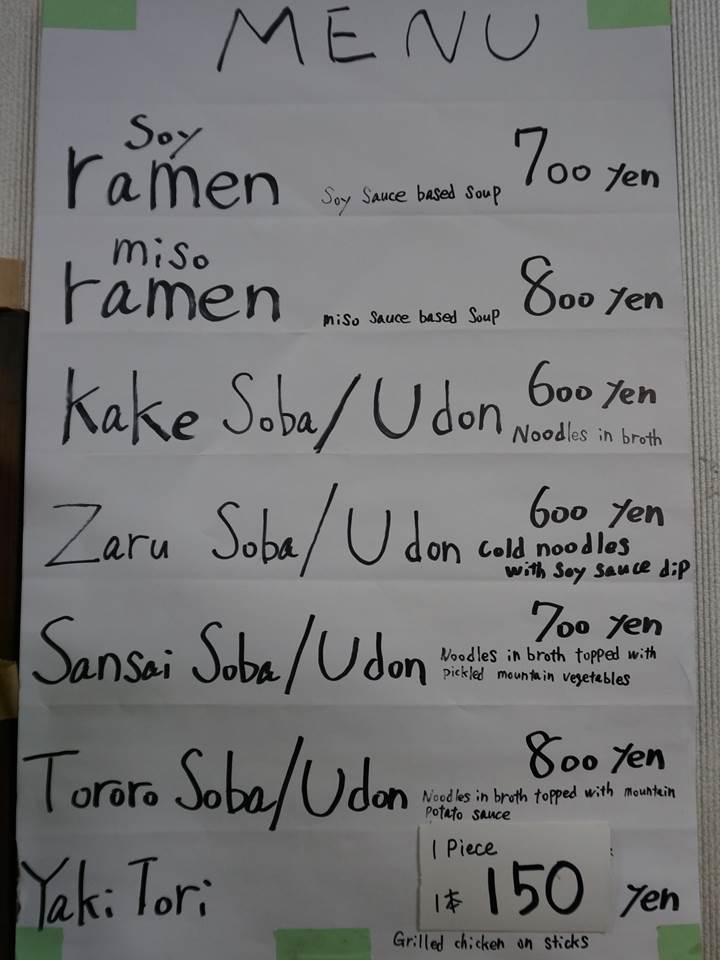 MENU
Soy
ramen Soy Sauce based Soup 700 yen
miso
ramen miso Sauce based Soup 800 yen
Kake Soba/Udon 600 yen
Noodles in broth
Zaru Soba/Udon 600 yen
cold noodles
with soy sauce dip
Sansai Soba/Udon 700 yen
Noodles in broth topped with
pickled mountain vegetables
Tororo Soba/Udon 800 yen
Noodles in broth topped with mountain
potato sauce
Yaki Tori
1 Piece
1本 150 yen
Grilled chicken on sticks